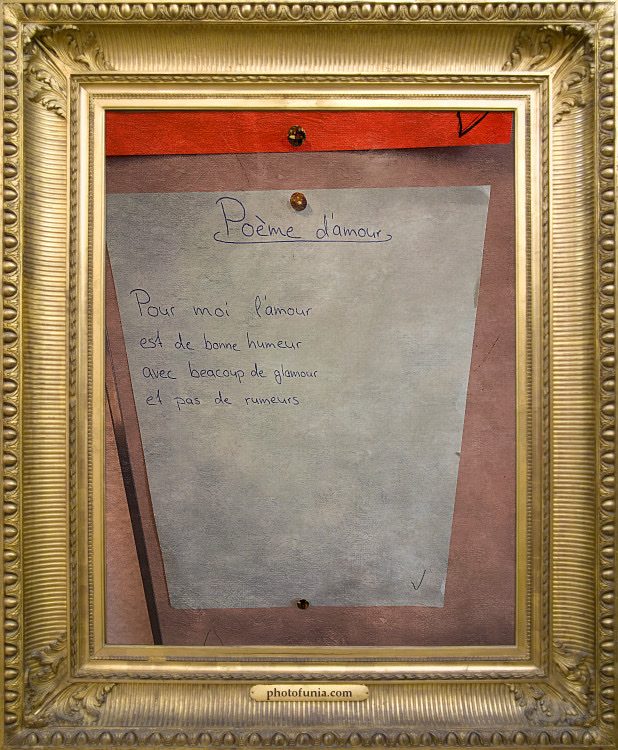 Poème d'amour
Pour moi l'amour
est de bonne humeur
avec beacoup de glamour
et pas de rumeurs
photofunia.com